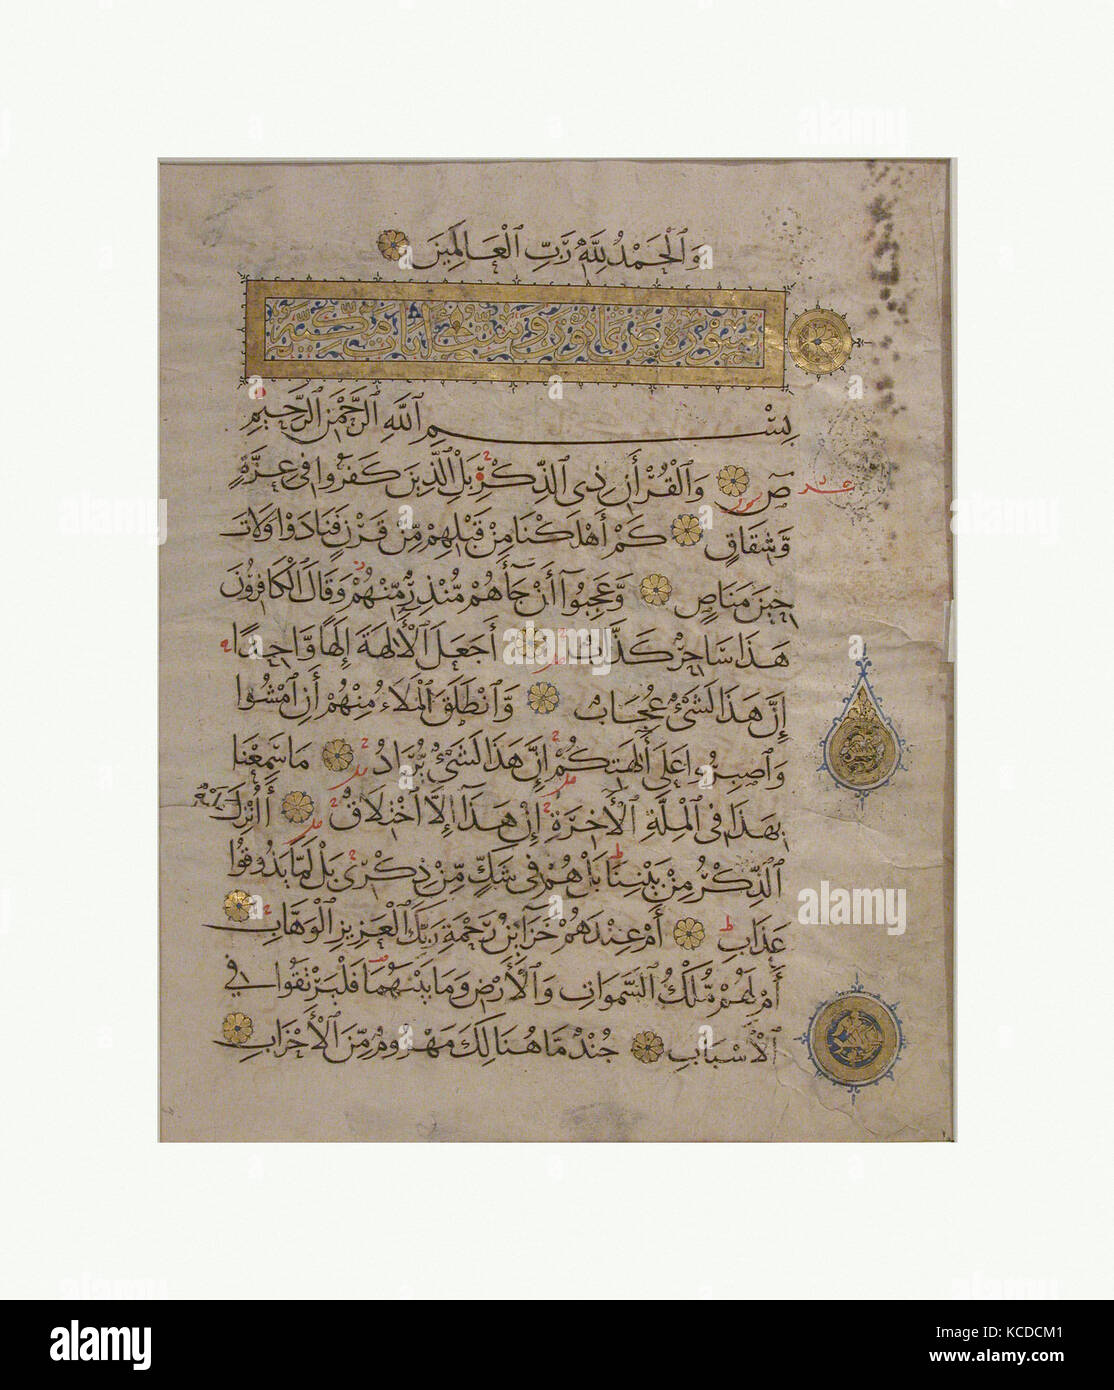 وَٱلْحَمْدُ لِلَّهِ رَبِّ ٱلْعَالَمِينَ
سورة ص ثمانون وست آيات مكية
بِسْمِ ٱللَّهِ ٱلرَّحْمَٰنِ ٱلرَّحِيمِ
صٓ وَٱلْقُرْآنِ ذِي ٱلذِّكْرِ بَلِ ٱلَّذِينَ كَفَرُوا فِي عِزَّةٍ
وَّشِقَاقٍ كَمْ أَهْلَكْنَا مِنْ قَبْلِهِمْ مِّنْ قَرْنٍ فَنَادَوْا وَلَاتَ
حِينَ مَنَاصٍ وَّعَجِبُوٓا أَنْ جَآءَهُمْ مُّنْذِرٌ مِّنْهُمْ وَقَالَ ٱلْكَافِرُونَ
هَذَا سَاحِرٌ كَذَّابٌ أَجَعَلَ ٱلْآلِهَةَ إِلَهًا وَّاحِدًا
إِنَّ هَذَا لَشَيْءٌ عُجَابٌ وَٱنْطَلَقَ ٱلْمَلَأُ مِنْهُمْ أَنِ ٱمْشُوا
وَٱصْبِرُوا عَلَى آلِهَتِكُمْ إِنَّ هَذَا لَشَيْءٌ يُّرَادُ مَا سَمِعْنَا
بِهَذَا فِي ٱلْمِلَّةِ ٱلْآخِرَةِ إِنْ هَذَآ إِلَّا ٱخْتِلَاقٌ أَأُنْزِلَ عَلَيْهِ
ٱلذِّكْرُ مِنْ بَيْنِنَا بَلْ هُمْ فِي شَكٍّ مِّنْ ذِكْرِي بَلْ لَّمَّا يَذُوقُوا
عَذَابِ أَمْ عِنْدَهُمْ خَزَآئِنُ رَحْمَةِ رَبِّكَ ٱلْعَزِيزِ ٱلْوَهَّابِ
أَمْ لَهُمْ مُّلْكُ ٱلسَّمَوَاتِ وَٱلْأَرْضِ وَمَا بَيْنَهُمَا فَلْيَرْتَقُوا فِي
ٱلْأَسْبَابِ جُنْدٌ مَّا هُنَالِكَ مَهْزُومٌ مِّنَ ٱلْأَحْزَابِ
alamy
Image ID: KCDCM1
www.alamy.com